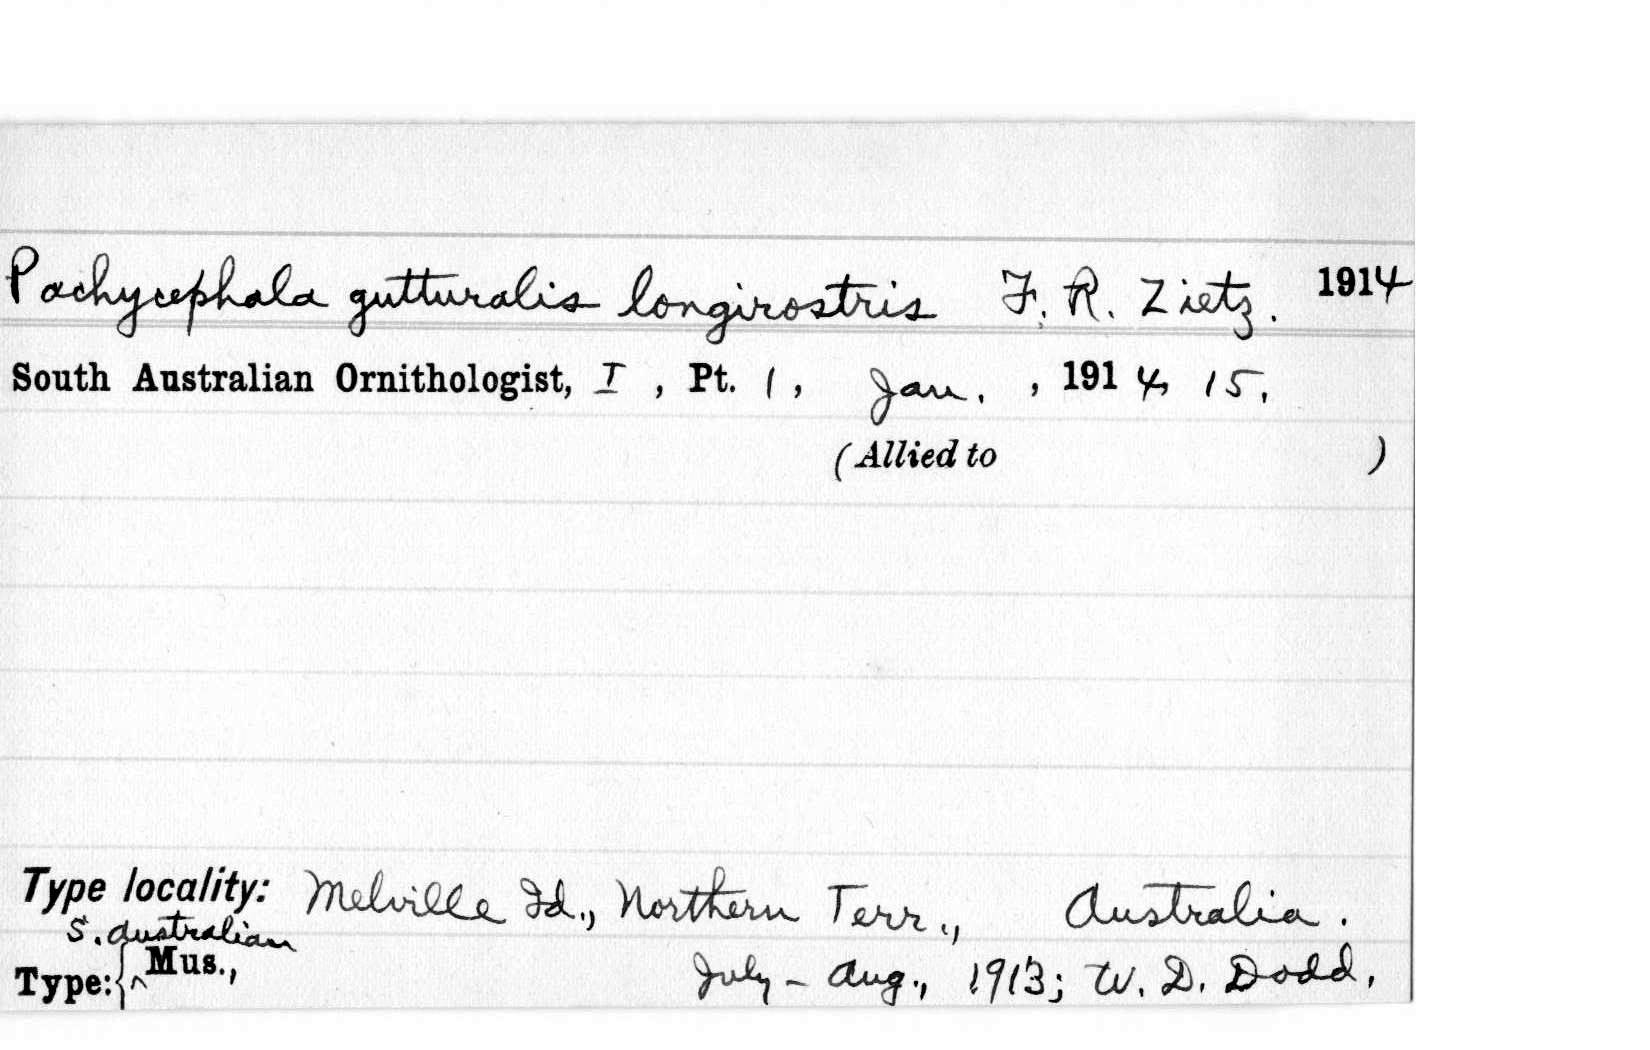 Pachycephala gutturalis longirostris F. R. Zietz. 1914
South Australian Ornithologist, I, Pt. 1, Jan., 1914, 15.
(Allied to )
Type locality: Melville Id., Northern Terr., Australia.
S. Australian
Type:{^Mus., July - Aug., 1913; W. D. Dodd.